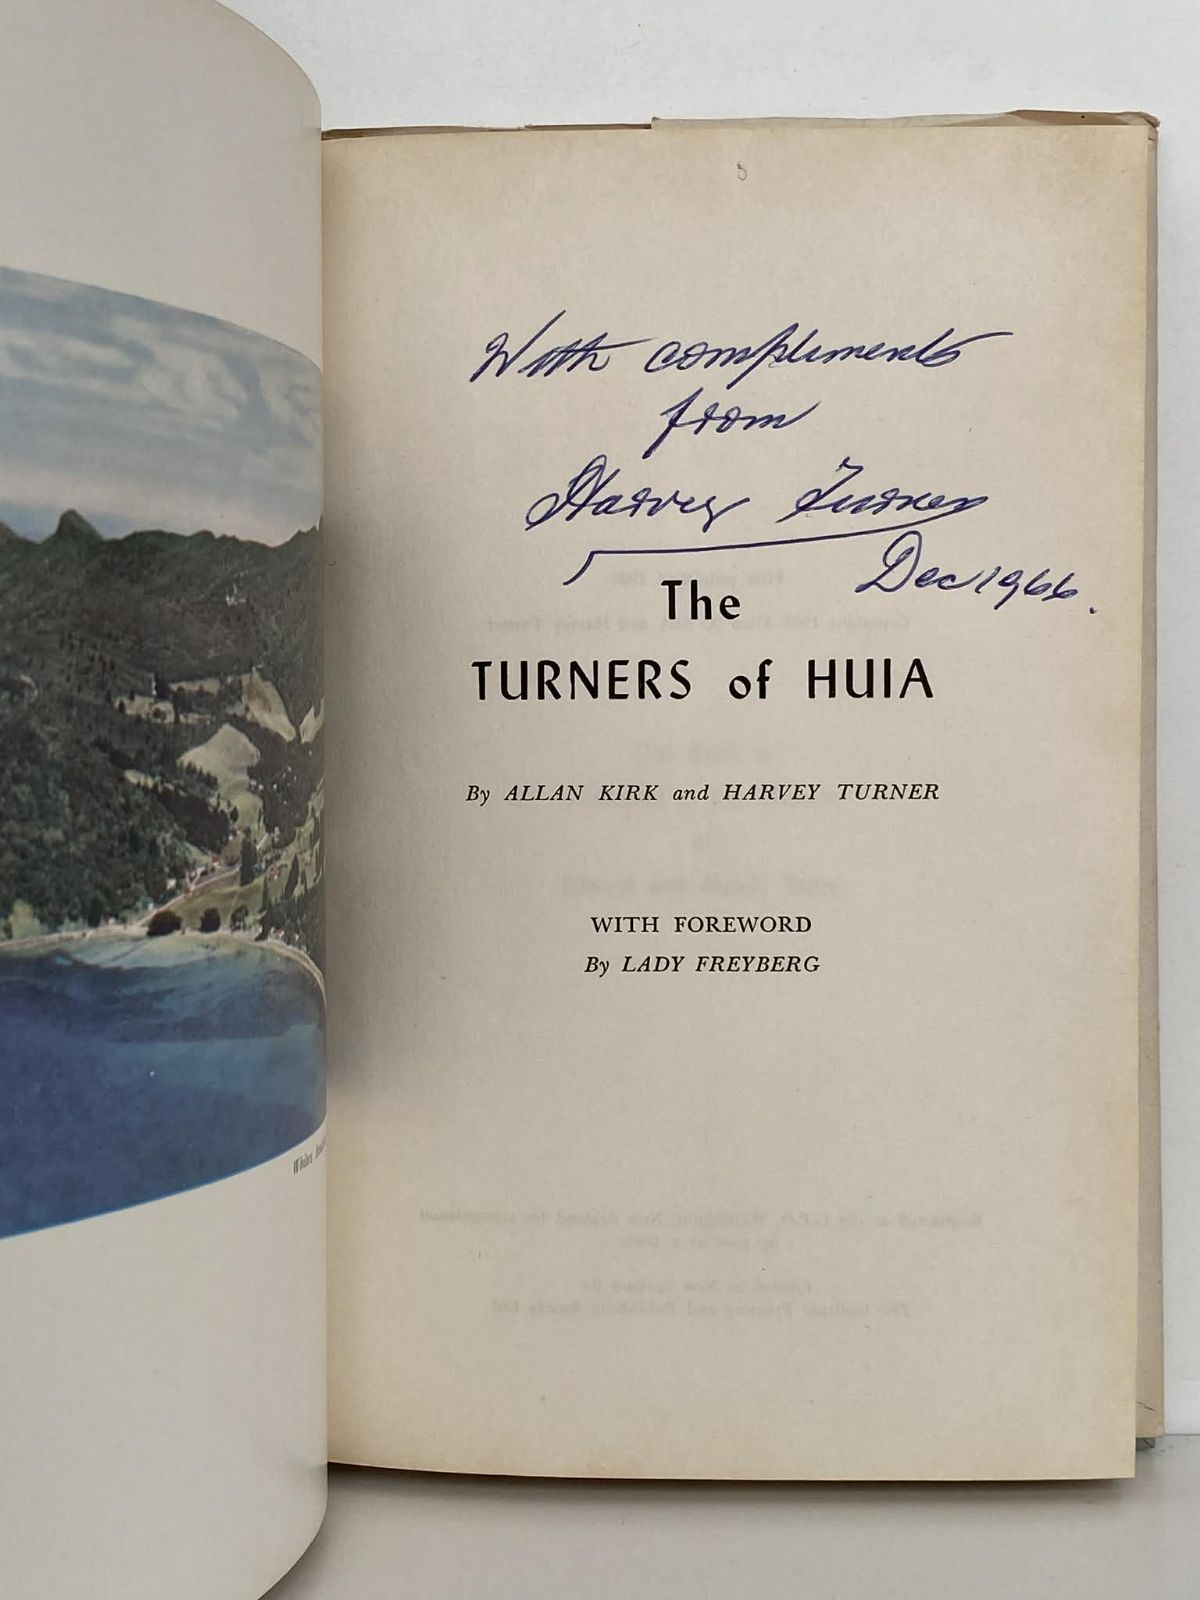 With compliments
from
Harvey Turner
Dec 1966.
The
TURNERS of HUIA
By ALLAN KIRK and HARVEY TURNER
WITH FOREWORD
By LADY FREYBERG
Whites